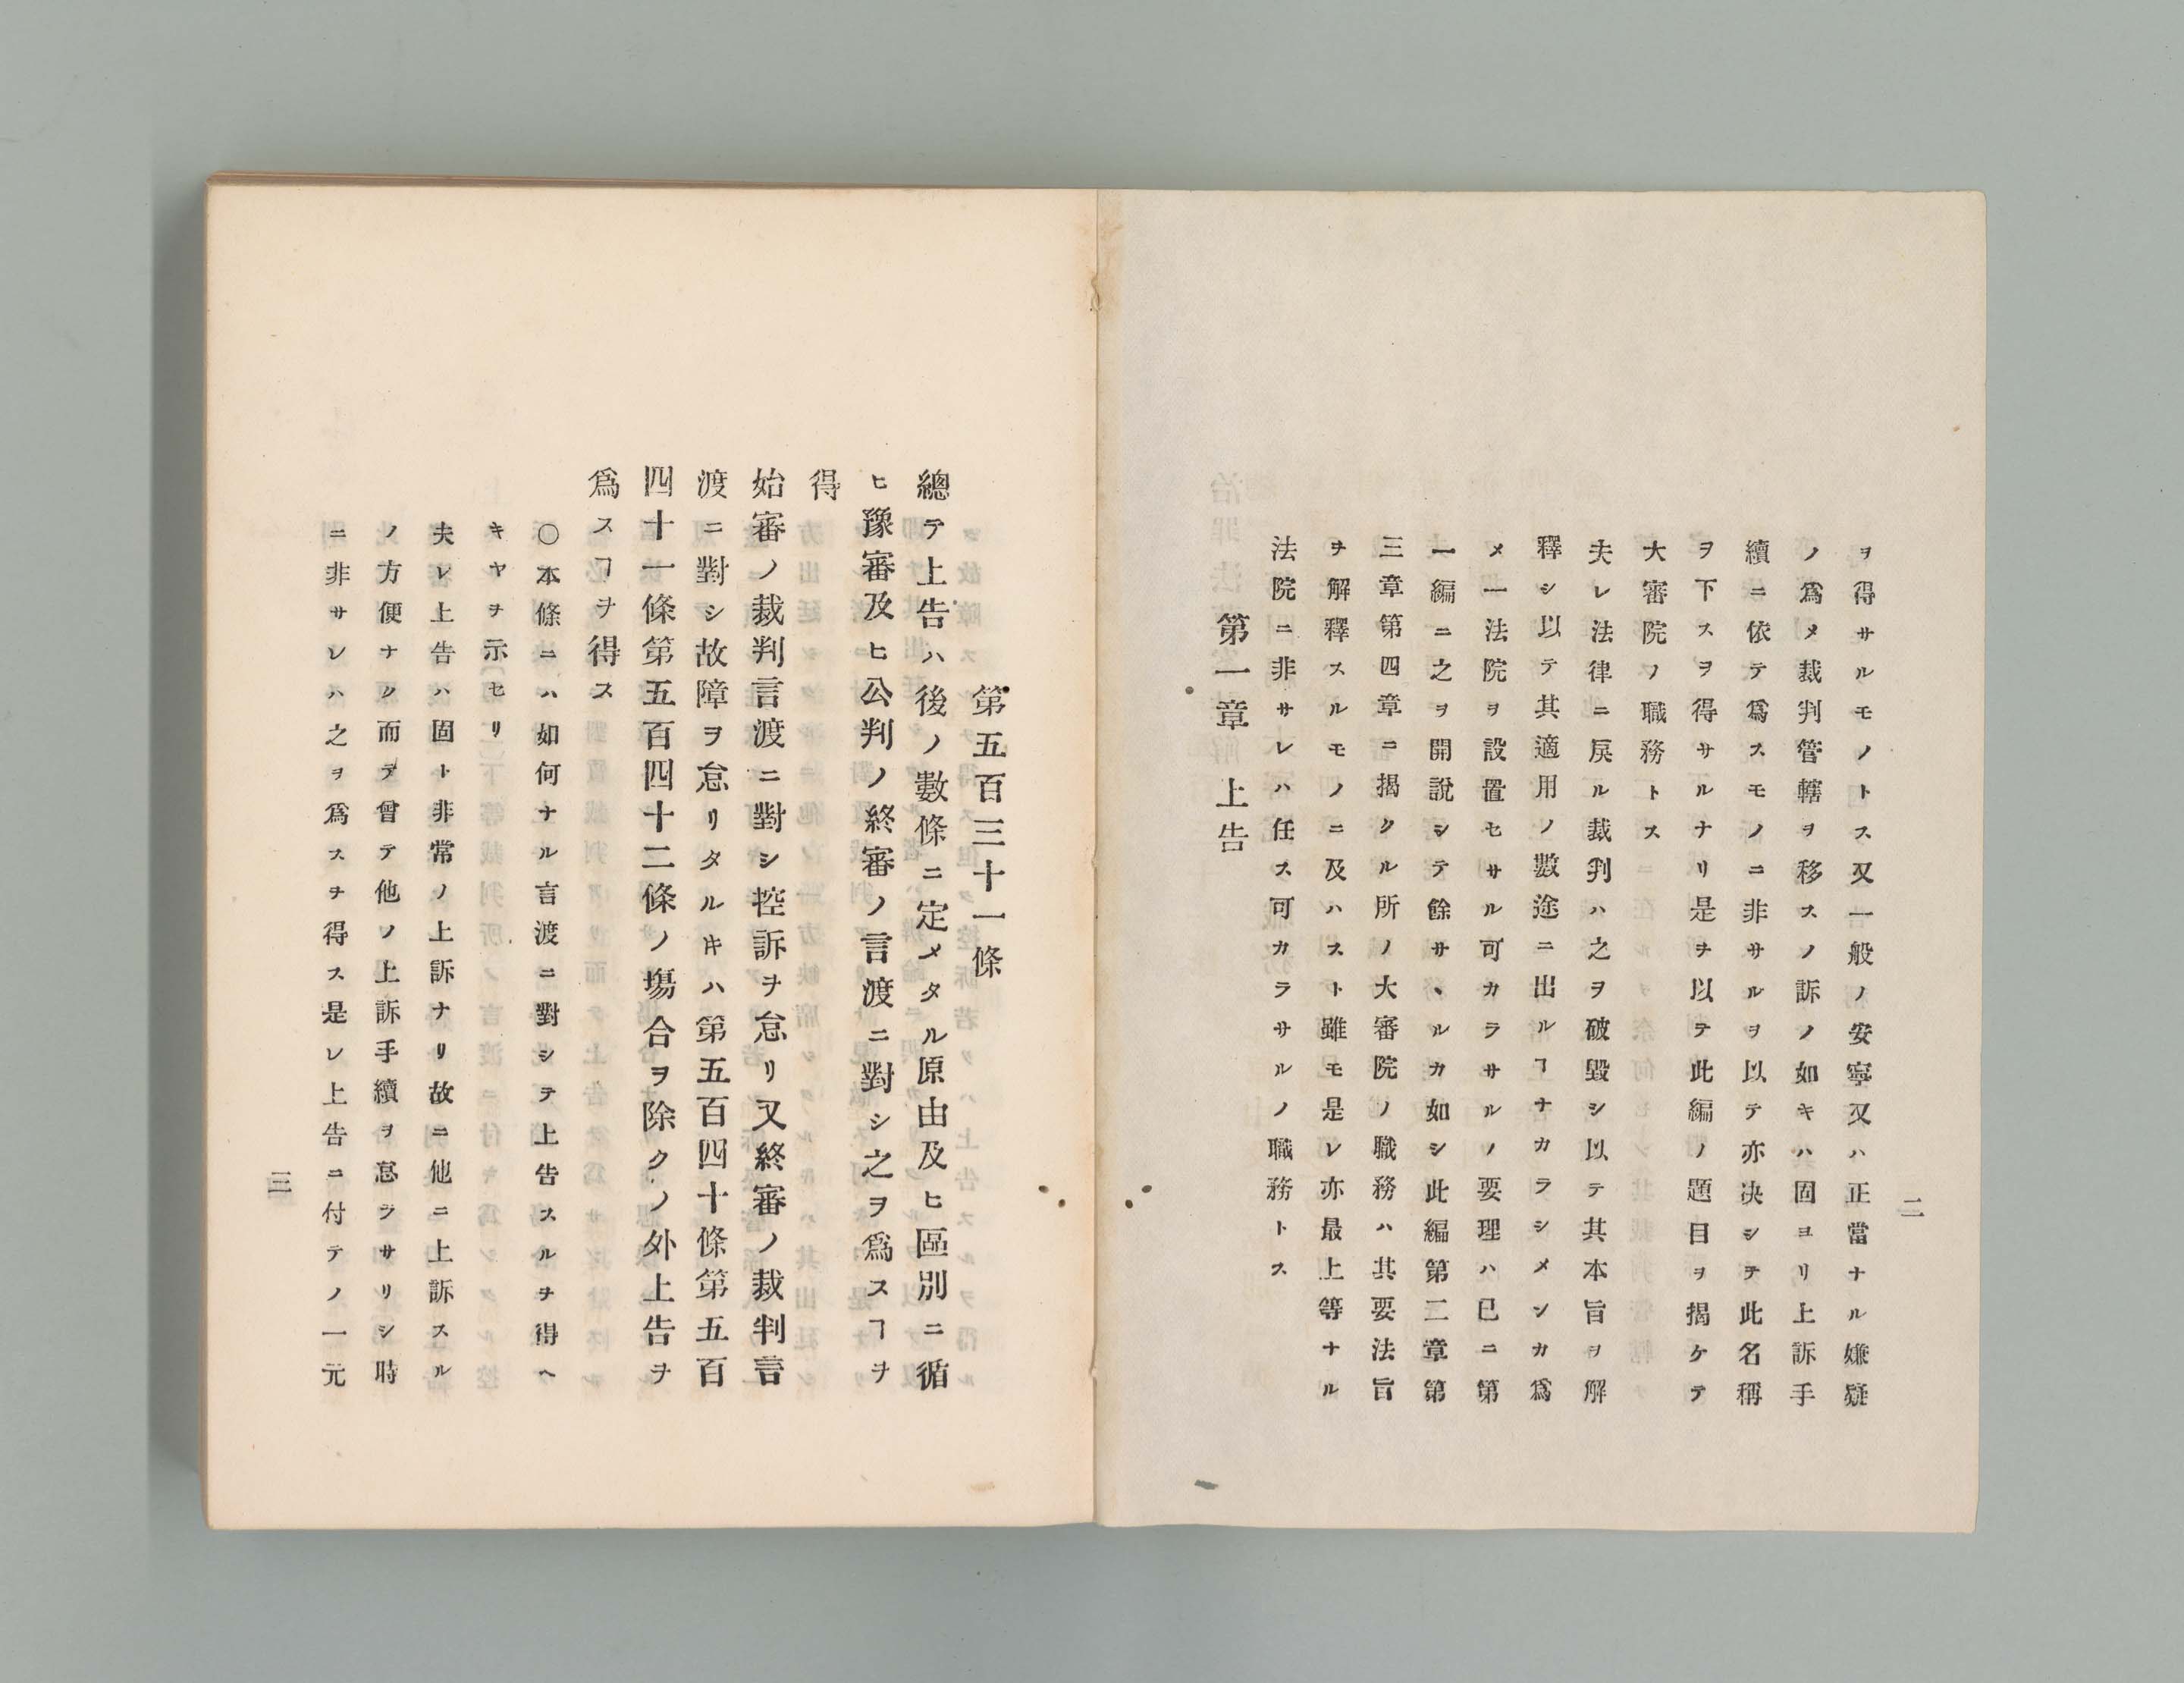 二
ヲ得サルモノトス又一般ノ安寧又ハ正當ナル嫌疑
ノ爲メ裁判管轄ヲ移スノ訴ノ如キハ固ヨリ上訴手
續ニ依テ爲スモノニ非サルヲ以テ亦决シテ此名稱
ヲ下スヲ得サルナリ是ヲ以テ此編ノ題目ヲ揭ケテ
大審院ノ職務トス
夫レ法律ニ戾ル裁判ハ之ヲ破毀シ以テ其本旨ヲ解
釋シ以テ其適用ノ數途ニ出ルヿナカラシメンカ爲
メ一法院ヲ設置セサル可カラサルノ要理ハ已ニ第
一編ニ之ヲ開說シテ餘サヽルカ如シ此編第二章第
三章第四章ニ揭クル所ノ大審院ノ職務ハ其要法旨
ヲ解釋スルモノニ及ハスト雖モ是レ亦最上等ナル
法院ニ非サレハ任ス可カラサルノ職務トス
第一章 上告
第五百三十一條
總テ上告ハ後ノ數條ニ定メタル原由及ヒ區別ニ循
ヒ豫審及ヒ公判ノ終審ノ言渡ニ對シ之ヲ爲スヿヲ
得
始審ノ裁判言渡ニ對シ控訴ヲ怠リ又終審ノ裁判言
渡ニ對シ故障ヲ怠リタルキハ第五百四十條第五百
四十一條第五百四十二條ノ塲合ヲ除クノ外上告ヲ
爲スヿヲ得ス
○本條ニハ如何ナル言渡ニ對シテ上告スルヲ得ヘ
キヤヲ示セリ
夫レ上告ハ固ト非常ノ上訴ナリ故ニ他ニ上訴スル
ノ方便ナク而テ曾テ他ノ上訴手續ヲ怠ラサリシ時
ニ非サレハ之ヲ爲スヲ得ス是レ上告ニ付テノ一元
三